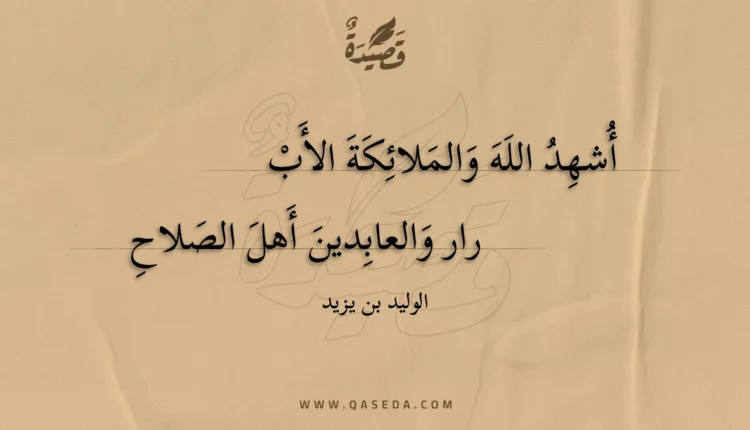 قَصِيْدَةٌ
أُشهِدُ اللَهَ وَالمَلائِكَةَ الأَبْ
رار وَالعابِدينَ أَهلَ الصَلاحِ
الوليد بن يزيد
WWW.QASEDA.COM